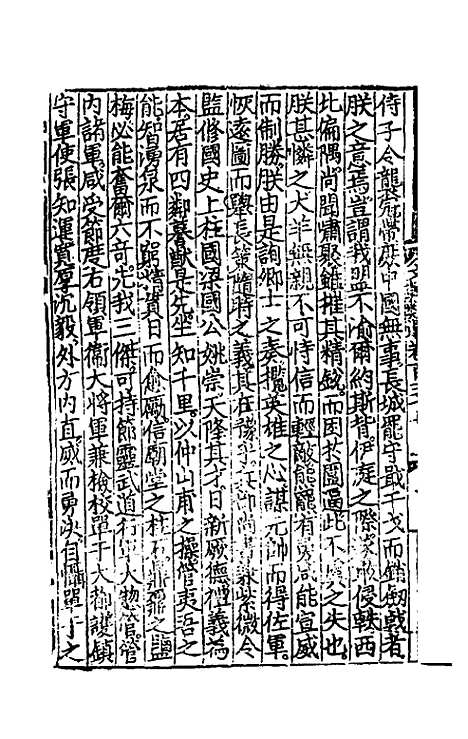 侍子今龍荒嚮化中國無事長城罷守戢干戈而銷劔戟者
朕之意焉豈謂我盟不渝爾約斯揹伊瀍之際侵軼西
北偏隅尚聞嘯聚雖摧其精銳而因於圍逼此不之失也
朕甚憐之犬羊無親不可恃信而輕敵能罷有咸能宣威
而制勝朕由是詢卿士之奏攬英雄之心謀元帥而得佐軍
恢遠圖而舉長策隨時之義其在兵部尚書兼紫微令
監修國史上柱國梁國公姚崇天隆其才日新厥德禮義為
本居有四鄰暮猷是先坐知千里以仲山甫之操管夷吾之
能智湧泉而不竭精貫日而愈勵信廟堂之柱石鼎鼐之鹽
梅必能奮爾六奇光我三傑可持節靈武道行軍大惣管管
內諸軍咸受節度右領軍衞大將軍兼檢校單于大都護鎮
守軍使張知運實厚沉毅外方內直威而勇決自懾單于之